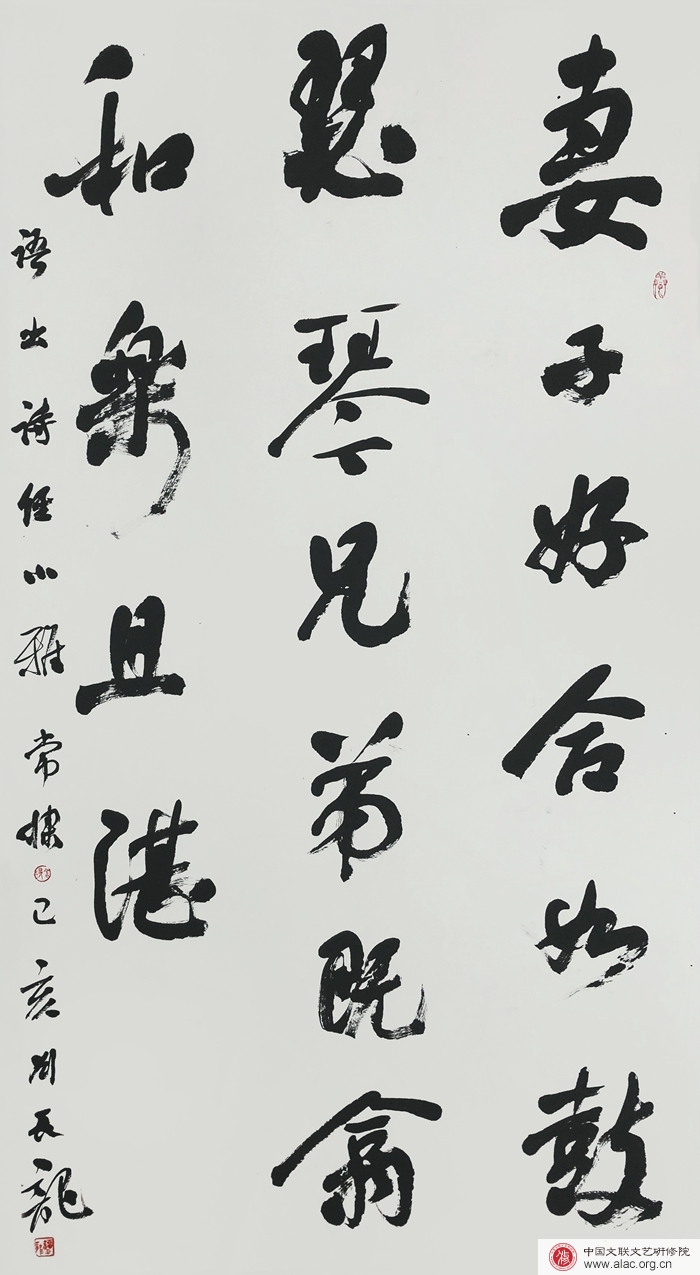 妻子好合如鼓
瑟琴兄弟既翕
和樂且湛
語出詩經小雅常棣己亥長龍
中国文联文艺研修院
www.alac.org.cn